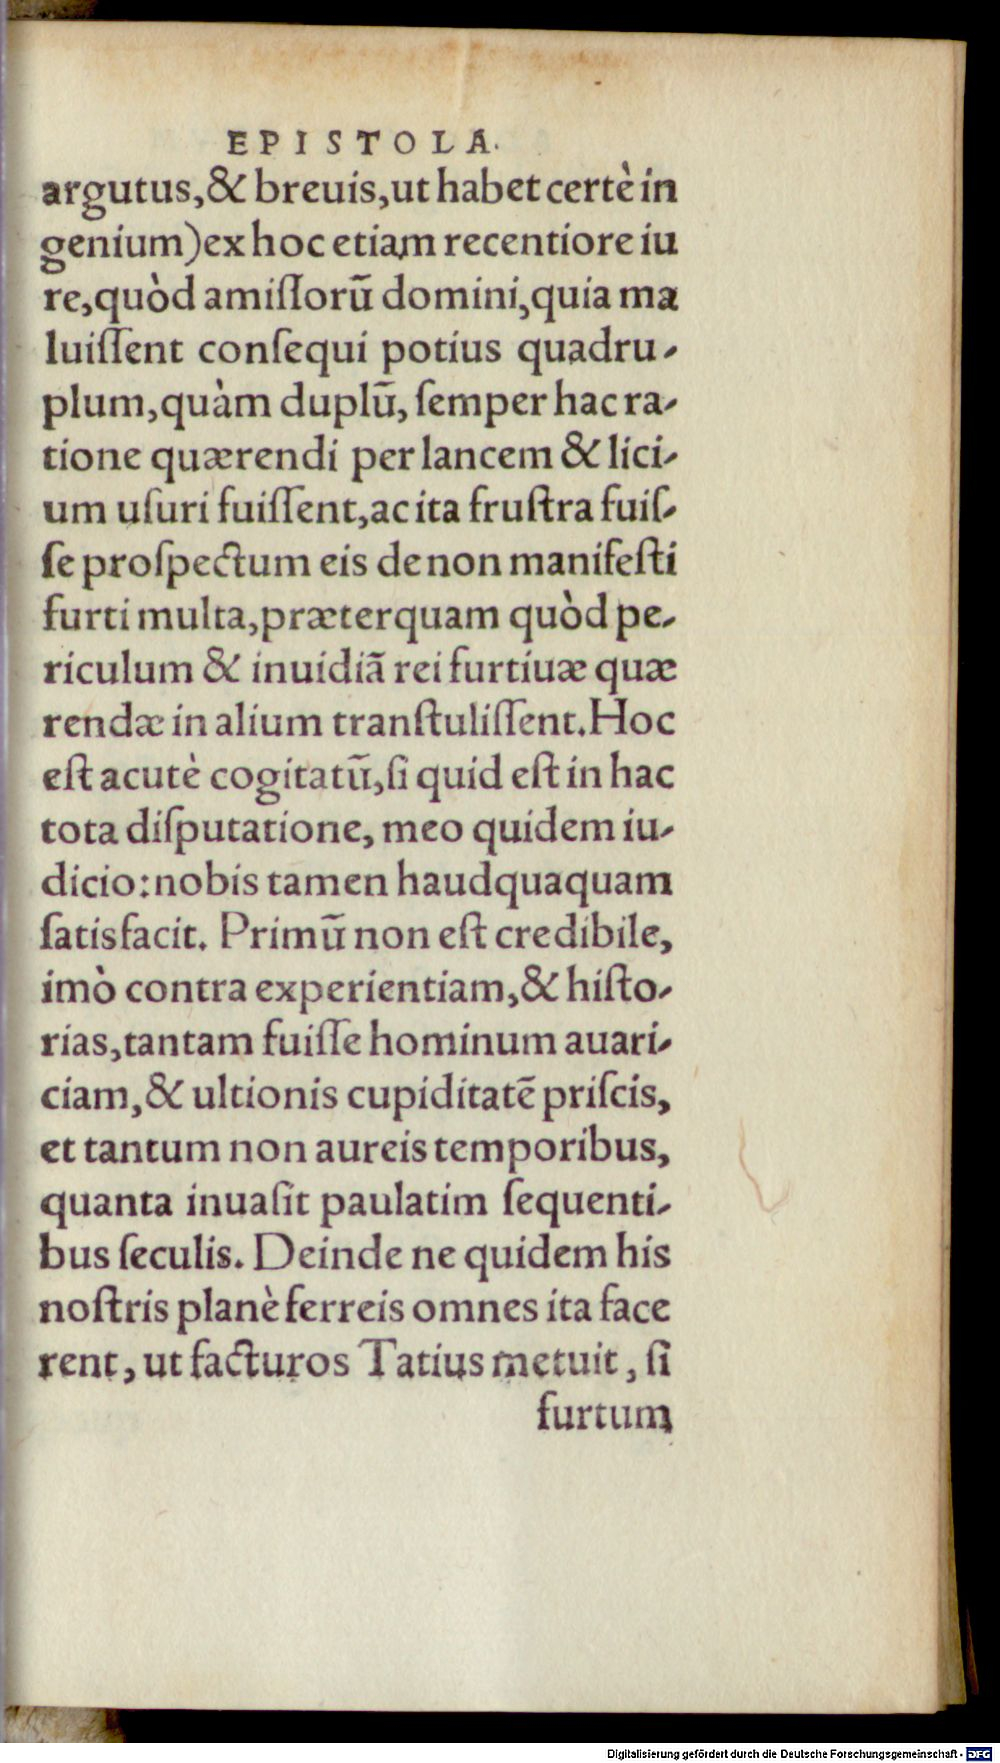 EPISTOLA.
argutus,& breuis,ut habet certè in
genium)ex hoc etiam recentiore iu
re,quòd amiſſorũ domini,quia ma
luiſſent conſequi potius quadru-
plum,quàm duplũ, ſemper hac ra-
tione quærendi per lancem & lici-
um uſuri fuiſſent,ac ita fruſtra fuiſ-
ſe proſpectum eis de non manifeſti
furti multa,præterquam quòd pe-
riculum & inuidiã rei furtiuæ quæ
rendæ in alium tranſtuliſſent.Hoc
eſt acutè cogitatũ,ſi quid eſt in hac
tota diſputatione, meo quidem iu-
dicio:nobis tamen haudquaquam
ſatisfacit. Primũ non eſt credibile,
imò contra experientiam,& hiſto-
rias,tantam fuiſſe hominum auari-
ciam,& ultionis cupiditatẽ priſcis,
et tantum non aureis temporibus,
quanta inuaſit paulatim ſequenti-
bus ſeculis. Deinde ne quidem his
noſtris planè ferreis omnes ita face
rent, ut facturos Tatius metuit, ſi
furtum
Digitalisierung gefördert durch die Deutsche Forschungsgemeinschaft - DFG